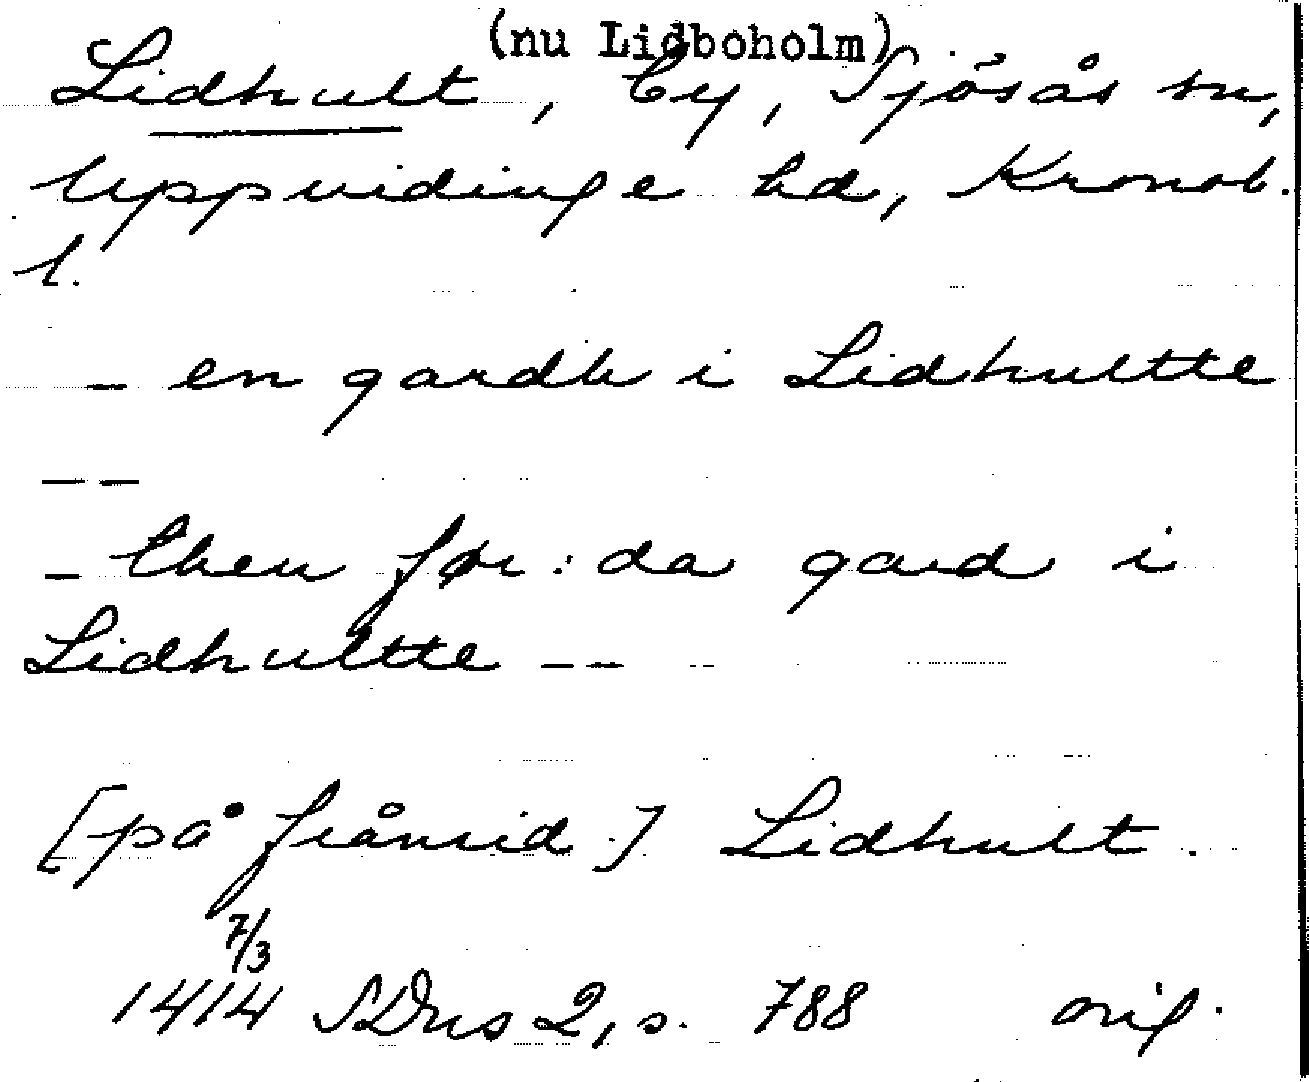 (nu Lidboholm)
Lidhult, by, Sjösås sn,
Uppvidinge hd, Kronob.
l.
- en gardh i Lidhultte
- -
- then før:da gard i
Lidhultte - -
[på frånsid.] Lidhult.
7/3
1414 SDns 2, s. 788 orig.